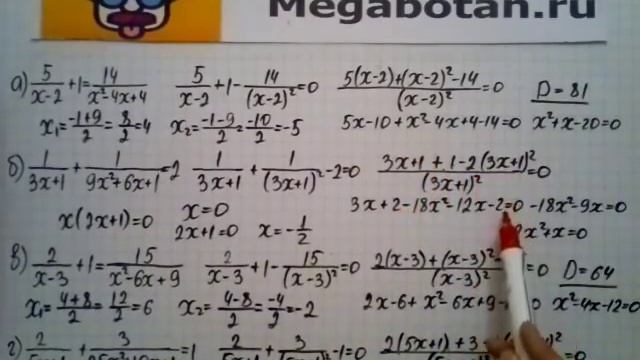 Megabotan.ru
а) 5/(x-2) + 1 = 14/(x²-4x+4)   5/(x-2) + 1 - 14/(x-2)² = 0   (5(x-2)+(x-2)²-14)/(x-2)² = 0   D=81
x₁ = (-1+9)/2 = 8/2 = 4   x₂ = (-1-9)/2 = -10/2 = -5   5x-10+x²-4x+4-14=0   x²+x-20=0
б) 1/(3x+1) + 1/(9x²+6x+1) = 2   1/(3x+1) + 1/(3x+1)² - 2 = 0   (3x+1+1-2(3x+1)²)/(3x+1)² = 0
3x+2-18x²-12x-2=0   -18x²-9x=0
x(2x+1)=0   x=0   2x²+x=0
2x+1=0   x=-1/2
в) 2/(x-3) + 1 = 15/(x²-6x+9)   2/(x-3) + 1 - 15/(x-3)² = 0   (2(x-3)+(x-3)²-)/(x-3)² = 0   D=64
x₁ = (4+8)/2 = 12/2 = 6   x₂ = (4-8)/2 = -4/2 = -2   2x-6+x²-6x+9-   0   x²-4x-12=0
г) 2/   + 3/   = 1   2/   + 3/   -1=0   2(5x+1)+3-